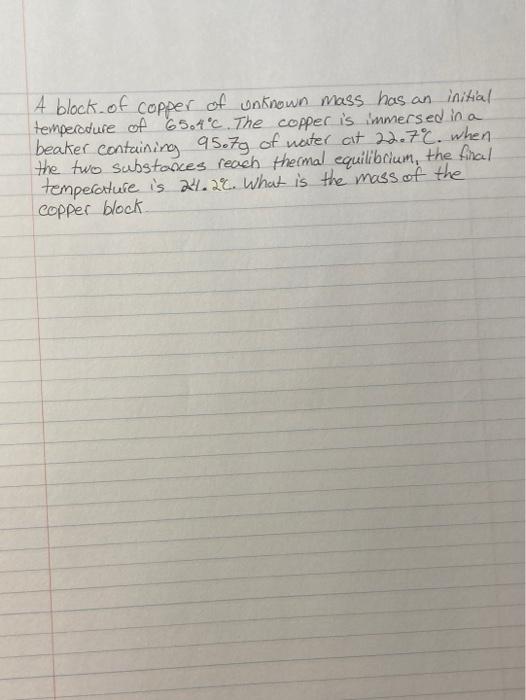 A block of copper of unknown mass has an initial
temperature of 65.4°C. The copper is immersed in a
beaker containing 95.7g of water at 22.7°C. when
the two substances reach thermal equilibrium, the final
temperature is 24.2°C. What is the mass of the
copper block